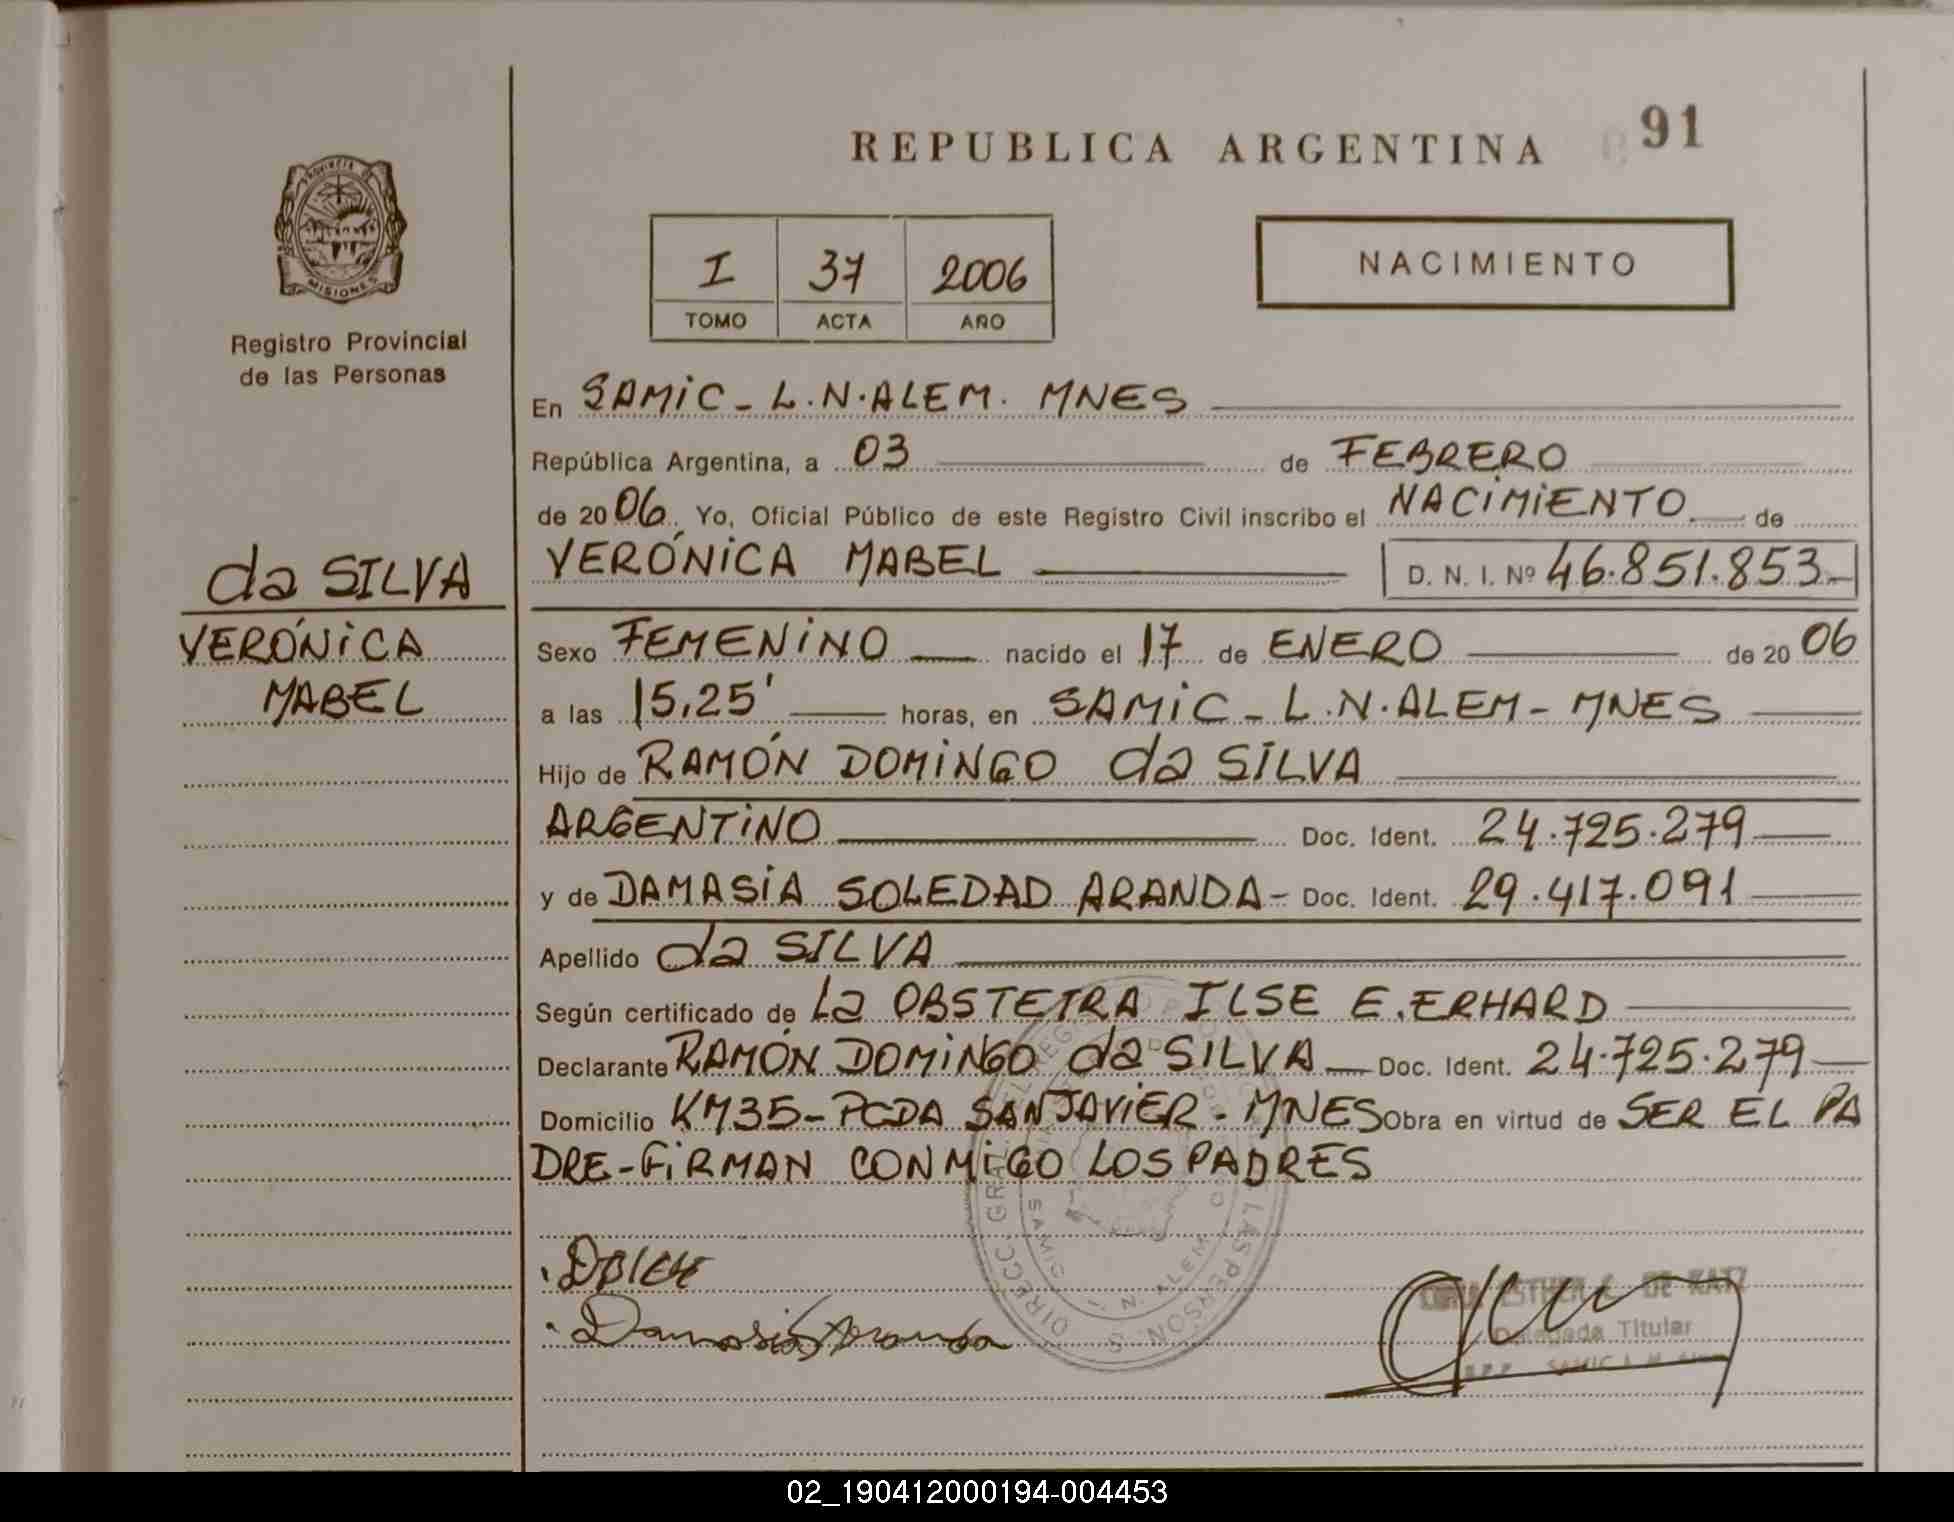 REPUBLICA ARGENTINA 91
PROVINCIA DE
MISIONES
Registro Provincial
de las Personas
I 37 2006
TOMO ACTA AÑO
NACIMIENTO
En SAMiC - L.N.ALEM. MNES
República Argentina, a 03 de FEBRERO
de 2006. Yo, Oficial Público de este Registro Civil inscribo el NACiMiENTO de
VERÓNiCA MABEL D. N. I. Nº 46.851.853
da SILVA
VERÓNiCA
MABEL
Sexo FEMENiNO nacido el 17 de ENERO de 2006
a las 15,25' horas, en SAMiC - L.N.ALEM - MNES
Hijo de RAMÓN DOMiNGO da SILVA
ARGENTiNO Doc. Ident. 24.725.279
y de DAMASiA SOLEDAD ARANDA - Doc. Ident. 29.417.091
Apellido da SILVA
Según certificado de La OBSTETRA ILSE E. ERHARD
Declarante RAMÓN DOMiNGO da SILVA Doc. Ident. 24.725.279
Domicilio KM35 - PCDA SAN JAViER - MNES Obra en virtud de SER EL PA
DRE - FiRMAN CONMiGO LOS PADRES
Damasia Aranda
ESTHER DE KATZ
Delegada Titular
SAMIC L. N. ALEM
02_190412000194-004453